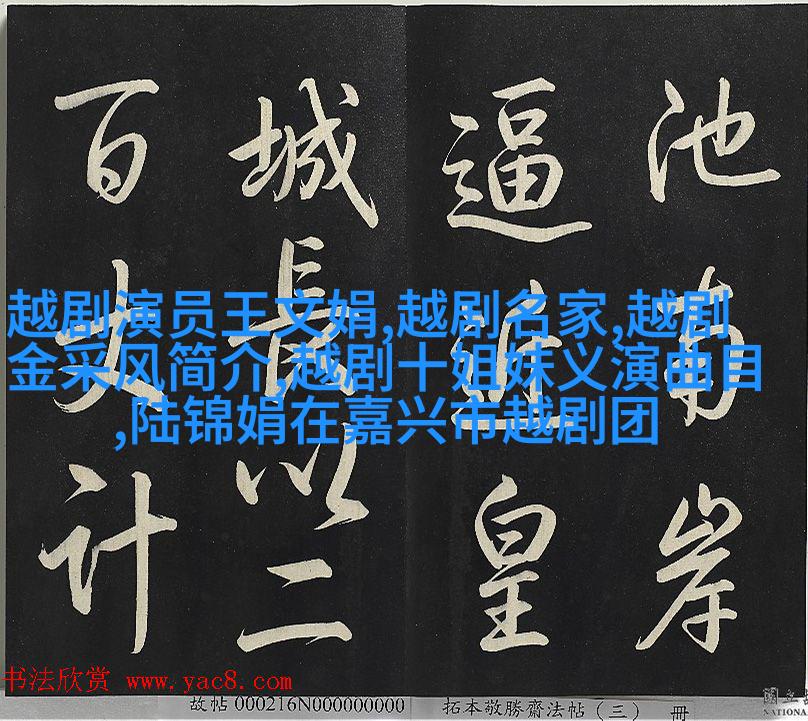 池南岸
逼近皇
城長以二
百丈计
越剧演员王文娟,越剧名家,越剧
金采风简介,越剧十姐妹义演曲目
,陆锦娟在嘉兴市越剧团
书法欣赏 www.yac8.com
故帖 000216N000000000 拓本敬勝齋法帖（三） 冊
國立
NATIONA